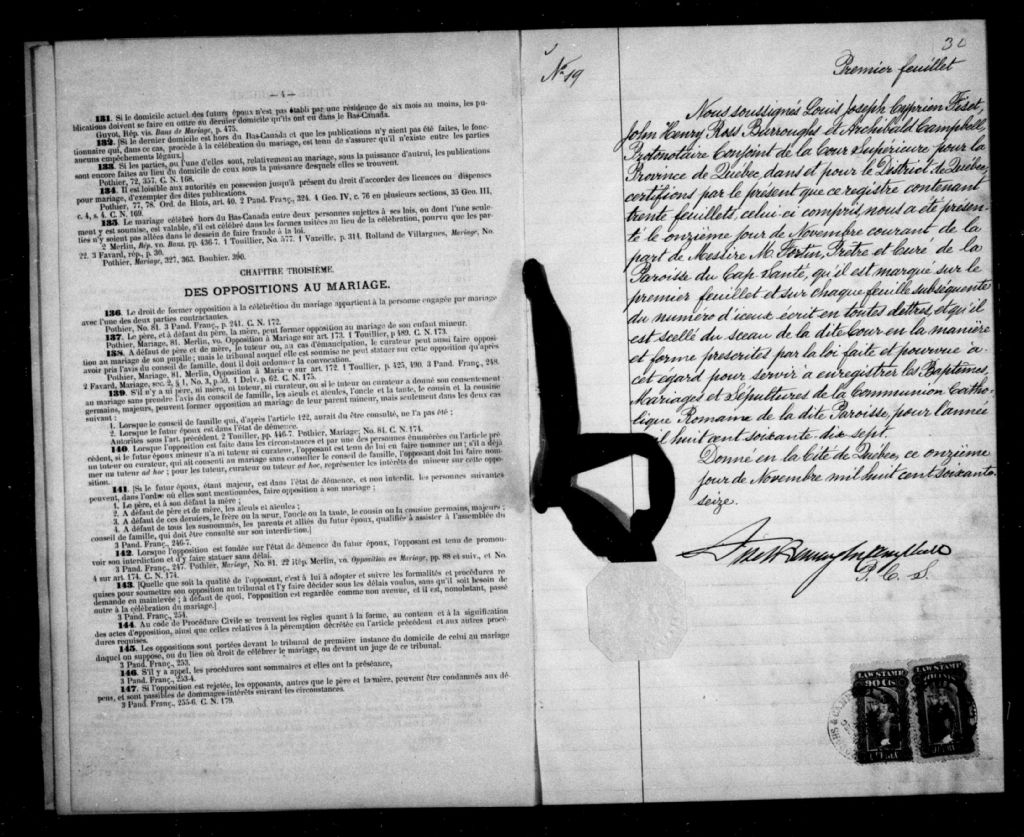 — 4 —
131. Si le domicile actuel des futurs époux n'est pas établi par une résidence de six mois au moins, les pu-
blications doivent se faire en outre au dernier domicile qu'ils ont eu dans le Bas-Canada.
Guyot, Rép. vis. Bans de Mariage, p. 475.
132. [Si le dernier domicile est hors du Bas-Canada et que les publications n'y aient pas été faites, le fonc-
tionnaire qui, dans ce cas, procède à la célébration du mariage, est tenu de s'assurer qu'il n'existe entre les parties
aucuns empêchements légaux.]
133. Si les parties, ou l'une d'elles sont, relativement au mariage, sous la puissance d'autrui, les publications
sont encore faites au lieu du domicile de ceux sous la puissance desquels elles se trouvent.
Pothier, 72, 357. C. N. 168.
134. Il est loisible aux autorités en possession jusqu'à présent du droit d'accorder des licences ou dispenses
pour mariage, d'exempter des dites publications.
Pothier, 77, 78. Ord. de Blois, art. 40. 2 Pand. Franç., 324. 4 Geo. IV, c. 76 en plusieurs sections, 35 Geo. III,
c. 4, s. 4. C. N. 169.
135. Le mariage célébré hors du Bas-Canada entre deux personnes sujettes à ses lois, ou dont l'une seule-
ment y est soumise, est valable, s'il est célébré dans les formes usitées au lieu de la célébration, pourvu que les par-
ties n'y soient pas allées dans le dessein de faire fraude à la loi.
2 Merlin, Rép. vo. Bans. pp. 436-7. 1 Touillier, No. 577. 1 Vazeille, p. 314. Rolland de Villargues, Mariage, No.
22. 3 Favard, rép., p. 30.
Pothier, Mariage, 327, 363. Bouhier. 390.
CHAPITRE TROISIÈME.
DES OPPOSITIONS AU MARIAGE.
136. Le droit de former opposition à la célébration du mariage appartient à la personne engagée par mariage
avec l'une des deux parties contractantes.
Pothier, No. 81. 3 Pand. Franç., p. 241. C. N. 172.
137. Le père, et à défaut du père, la mère, peut former opposition au mariage de son enfant mineur.
Pothier, Mariage, 81. Merlin, vo. Opposition à Mariage sur art. 173. 1 Touillier, p 489. C. N. 173.
138. A défaut de père et de mère, le tuteur ou, au cas d'émancipation, le curateur peut aussi faire opposi-
tion au mariage de son pupille; mais le tribunal auquel elle est soumise ne peut statuer sur cette opposition qu'après
avoir pris l'avis du conseil de famille, dont il doit ordonner la convocation.
Pothier, Mariage, 81. Merlin, Opposition à Mariage sur art. 172. 1 Touillier, p. 425, 490. 3 Pand. Franç., 248.
2 Favard, Mariage, sec. 2, § 1, No. 3, p. 59. 1 Delv. p. 62. C. N. 175.
139. S'il n'y a ni père, ni mère, ni tuteur, ni curateur, ou si le tuteur ou curateur a donné son consentement
au mariage sans prendre l'avis du conseil de famille, les aïeuls et aïeules, l'oncle et la tante, le cousin et la cousine
germains, majeurs, peuvent former opposition au mariage de leur parent mineur, mais seulement dans les deux cas
suivant :
1. Lorsque le conseil de famille qui, d'après l'article 122, aurait dû être consulté, ne l'a pas été ;
2. Lorsque le futur époux est dans l'état de démence.
Autorités sous l'art. précédent. 2 Touiller, pp. 446-7. Pothier, Mariage; No. 81. C. N. 174.
140. Lorsque l'opposition est faite dans les circonstances et par une des personnes énumérées en l'article pré-
cédent, si le futur époux mineur n'a ni tuteur ni curateur, l'opposant est tenu de lui en faire nommer un ; s'il a déjà
un tuteur ou curateur, qui ait consenti au mariage sans consulter le conseil de famille, l'opposant doit lui faire nom-
mer un tuteur ad hoc ; pour les tuteur, curateur ou tuteur ad hoc, représenter les intérêts du mineur sur cette oppo-
sition.
141. [Si le futur époux, étant majeur, est dans l'état de démence, et non interdit, les personnes suivantes
peuvent, dans l'ordre où elles sont mentionnées, faire opposition à son mariage ;
1. Le père, et à son défaut la mère ;
2. A défaut de père et de mère, les aïeuls et aïeules ;
3. A défaut de ces derniers, le frère ou la sœur, l'oncle ou la tante, le cousin ou la cousine germains, majeurs ;
4. A défaut de tous les susnommés, les parents et alliés du futur époux, qualifiés à assister à l'assemblée du
conseil de famille, qui doit être consulté sur son interdiction.]
3 Pand. Franç., 246-7.
142. Lorsque l'opposition est fondée sur l'état de démence du futur époux, l'opposant est tenu de promou-
voir son interdiction et d'y faire statuer sans délai.
3 Pand. Franç., 247. Pothier, Mariage, No. 81. 22 Rép. Merlin, vo. Opposition au Mariage, pp. 88 et suiv., et No.
4 sur art. 174. C. N. 174.
143. [Quelque que soit la qualité de l'opposant, c'est à lui à adopter et suivre les formalités et procédures re
quises pour soumettre son opposition au tribunal et l'y faire décider sous les délais voulus, sans qu'il soit besoin de
demande en mainlevée ; à défaut de quoi, l'opposition est regardée comme non avenue, et il est, nonobstant, passé
outre à la célébration du mariage.]
3 Pand. Franç., 254.
144. Au code de Procédure Civile se trouvent les règles quant à la forme, au contenu et à la signification
des actes d'opposition, ainsi que celles relatives à la péremption décrétée en l'article précédent et aux autres procé-
dures requises.
145. Les oppositions sont portées devant le tribunal de première instance du domicile de celui au mariage
duquel on suppose, ou du lieu où doit se célébrer le mariage, ou devant un juge de ce tribunal.
3 Pand. Franç., 253.
146. S'il y a appel, les procédures sont sommaires et elles ont la préséance,
3 Pand. Franç., 253-4.
147. Si l'opposition est rejetée, les opposants, autres que le père et la mère, peuvent être condamnés aux dé-
pens, et sont passibles de dommages-intérêts suivant les circonstances.
3 Pand. Franç., 255-6. C. N. 179.
No 19
30
Premier feuillet
Nous soussignés Louis Joseph Cyprien Fiset
John Henry Ross Burroughs et Archibald Campbell,
Protonotaire Conjoint de la Cour Supérieure pour la
Province de Quebec, dans et pour le District de Québec,
certifions par le présent que ce registre contenant
trente feuillets, celui-ci compris, nous a été présen-
té le onzième jour de Novembre courant de la
part de Messire M. Fortin, Prêtre et Curé de la
Paroisse du Cap Santé, qu'il est marqué sur le
premier feuillet et sur chaque feuille subséquente
du numéro d'iceux écrit en toutes lettres, et qu'il
est scellé du sceau de la dite Cour en la manière
et forme prescrites par la loi faite et pourvue à
cet égard pour servir à enregistrer les Baptêmes,
Mariages et Sépultures de la Communion Catho-
lique Romaine de la dite Paroisse, pour l'année
il huit cent soixante dix sept.
Donné en la Cité de Québec, ce onzième
jour de Novembre mil huit cent soixante
seize.
P. C. S.
LAW STAMP
90 Cts
LAW STAMP